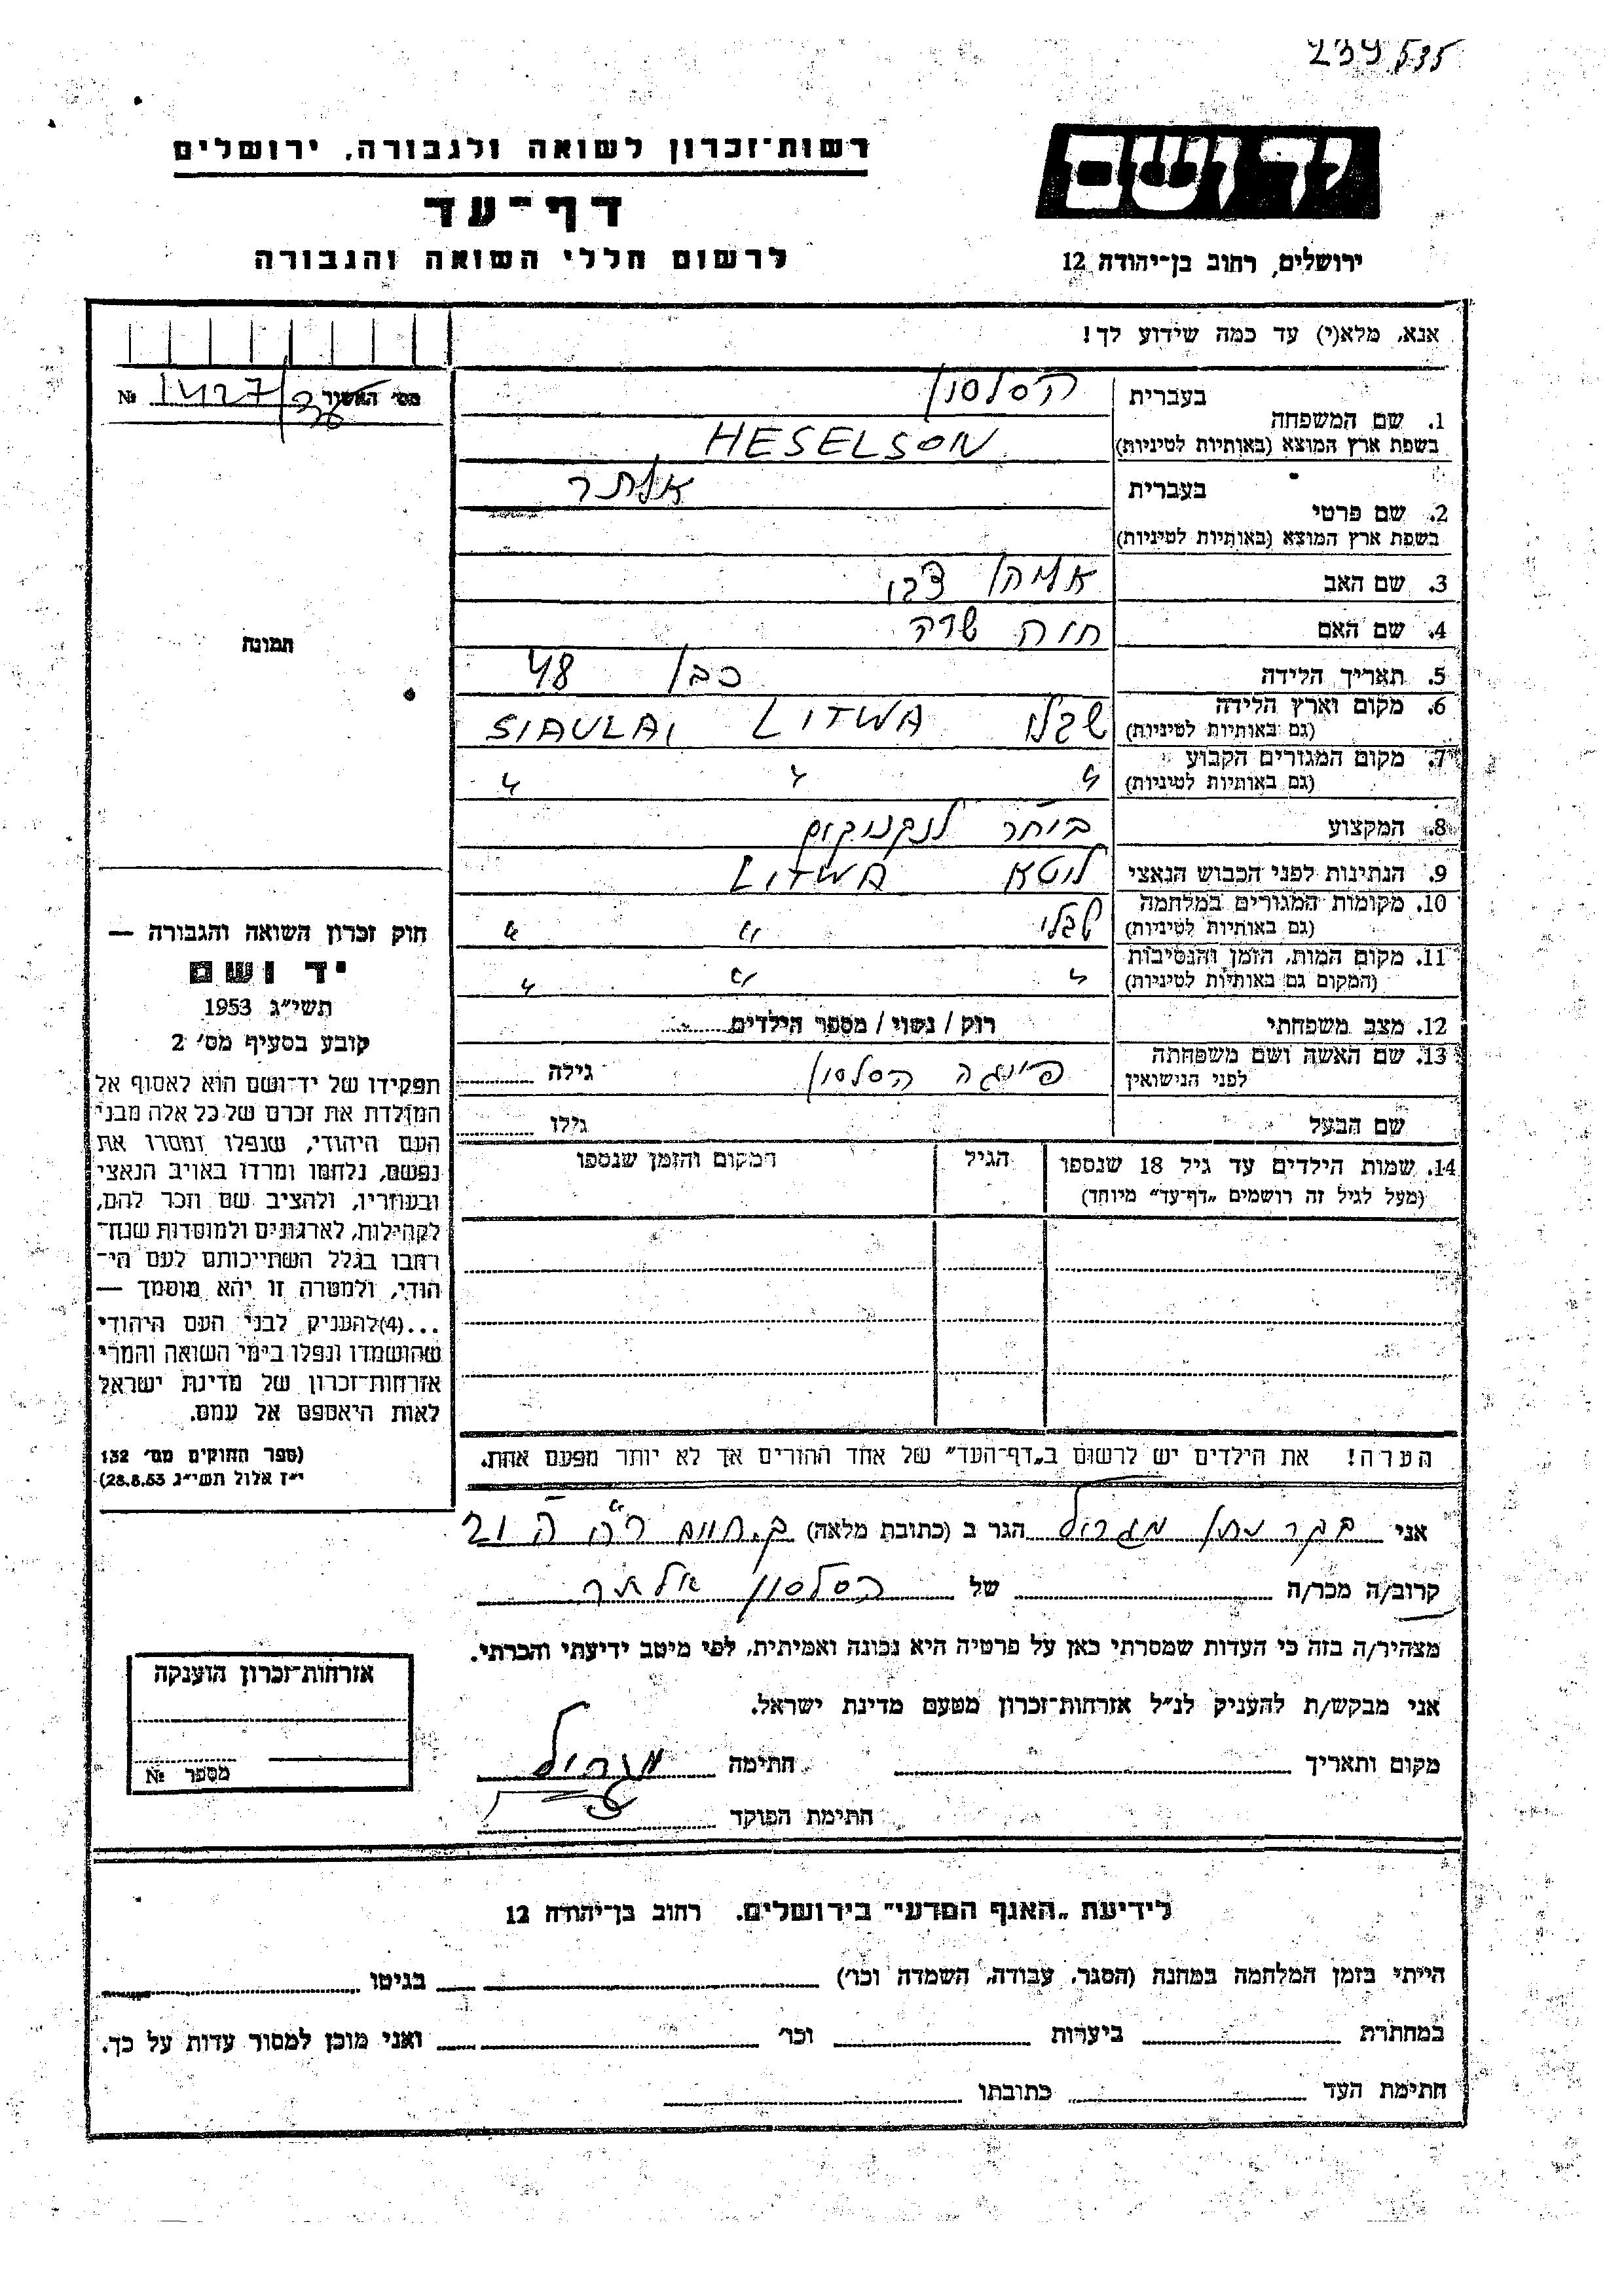 רשות־זכרון לשואה ולגבורה, ירושלים
דף־עד
לרשום חללי השואה והגבורה
ירושלים, רחוב בן־יהודה 12
אנא, מלא(י) עד כמה שידוע לך!
מס׳ האשור №
1. שם המשפחה
בעברית הסלסון
בשפת ארץ המוצא (באותיות לטיניות) HESELSON
2. שם פרטי
בעברית אלתר
בשפת ארץ המוצא (באותיות לטיניות)
3. שם האב אליהו צבי
4. שם האם חוה שרה
5. תאריך הלידה כבן 48
6. מקום וארץ הלידה שבלי LITWA SIAULAI
(גם באותיות לטיניות)
7. מקום המגורים הקבוע " " "
(גם באותיות לטיניות)
8. המקצוע
9. הנתינות לפני הכבוש הנאצי ליטא LITWA
10. מקומות המגורים במלחמה שבלי " "
(גם באותיות לטיניות)
11. מקום המות, הזמן והנסיבות " " "
(המקום גם באותיות לטיניות)
12. מצב משפחתי רוק / נשוי / מספר הילדים
13. שם האשה ושם משפחתה הסלסון גילה
לפני הנישואין
שם הבעל גילו
14. שמות הילדים עד גיל 18 שנספו הגיל המקום והזמן שנספו
(מעל לגיל זה רושמים „דף־עד״ מיוחד)
הערה! את הילדים יש לרשום ב„דף־העד״ של אחד ההורים אך לא יותר מפעם אחת.
אני הגר ב (כתובת מלאה)
קרוב/ה מכר/ה של הסלסון אלתר
מצהיר/ה בזה כי העדות שמסרתי כאן על פרטיה היא נכונה ואמיתית, לפי מיטב ידיעתי והכרתי.
אני מבקש/ת להעניק לנ״ל אזרחות־זכרון מטעם מדינת ישראל.
מקום ותאריך חתימה
חתימת הפוקד
תמונה
חוק זכרון השואה והגבורה —
יד ושם
תשי״ג 1953
קובע בסעיף מס׳ 2
תפקידו של יד־ושם הוא לאסוף אל
המולדת את זכרם של כל אלה מבני
העם היהודי, שנפלו ומסרו את
נפשם, נלחמו ומרדו באויב הנאצי
ובעוזריו, ולהציב שם וזכר להם,
לקהילות, לארגונים ולמוסדות שנח־
רבו בגלל השתייכותם לעם הי־
הודי, ולמטרה זו יהא מוסמך —
...(4)להעניק לבני העם היהודי
שהושמדו ונפלו בימי השואה והמרי
אזרחות־זכרון של מדינת ישראל
לאות היאספם אל עמם.
(ספר החוקים מס׳ 132
י״ז אלול תשי״ג 28.8.53)
אזרחות־זכרון הוענקה
מספר №
לידיעת „האגף המדעי״ בירושלים, רחוב בן־יהודה 12
הייתי בזמן המלחמה במחנה (הסגר, עבודה, השמדה וכו׳) בגיטו
במחתרת ביערות וכו׳ ואני מוכן למסור עדות על כך.
חתימת העד כתובתו